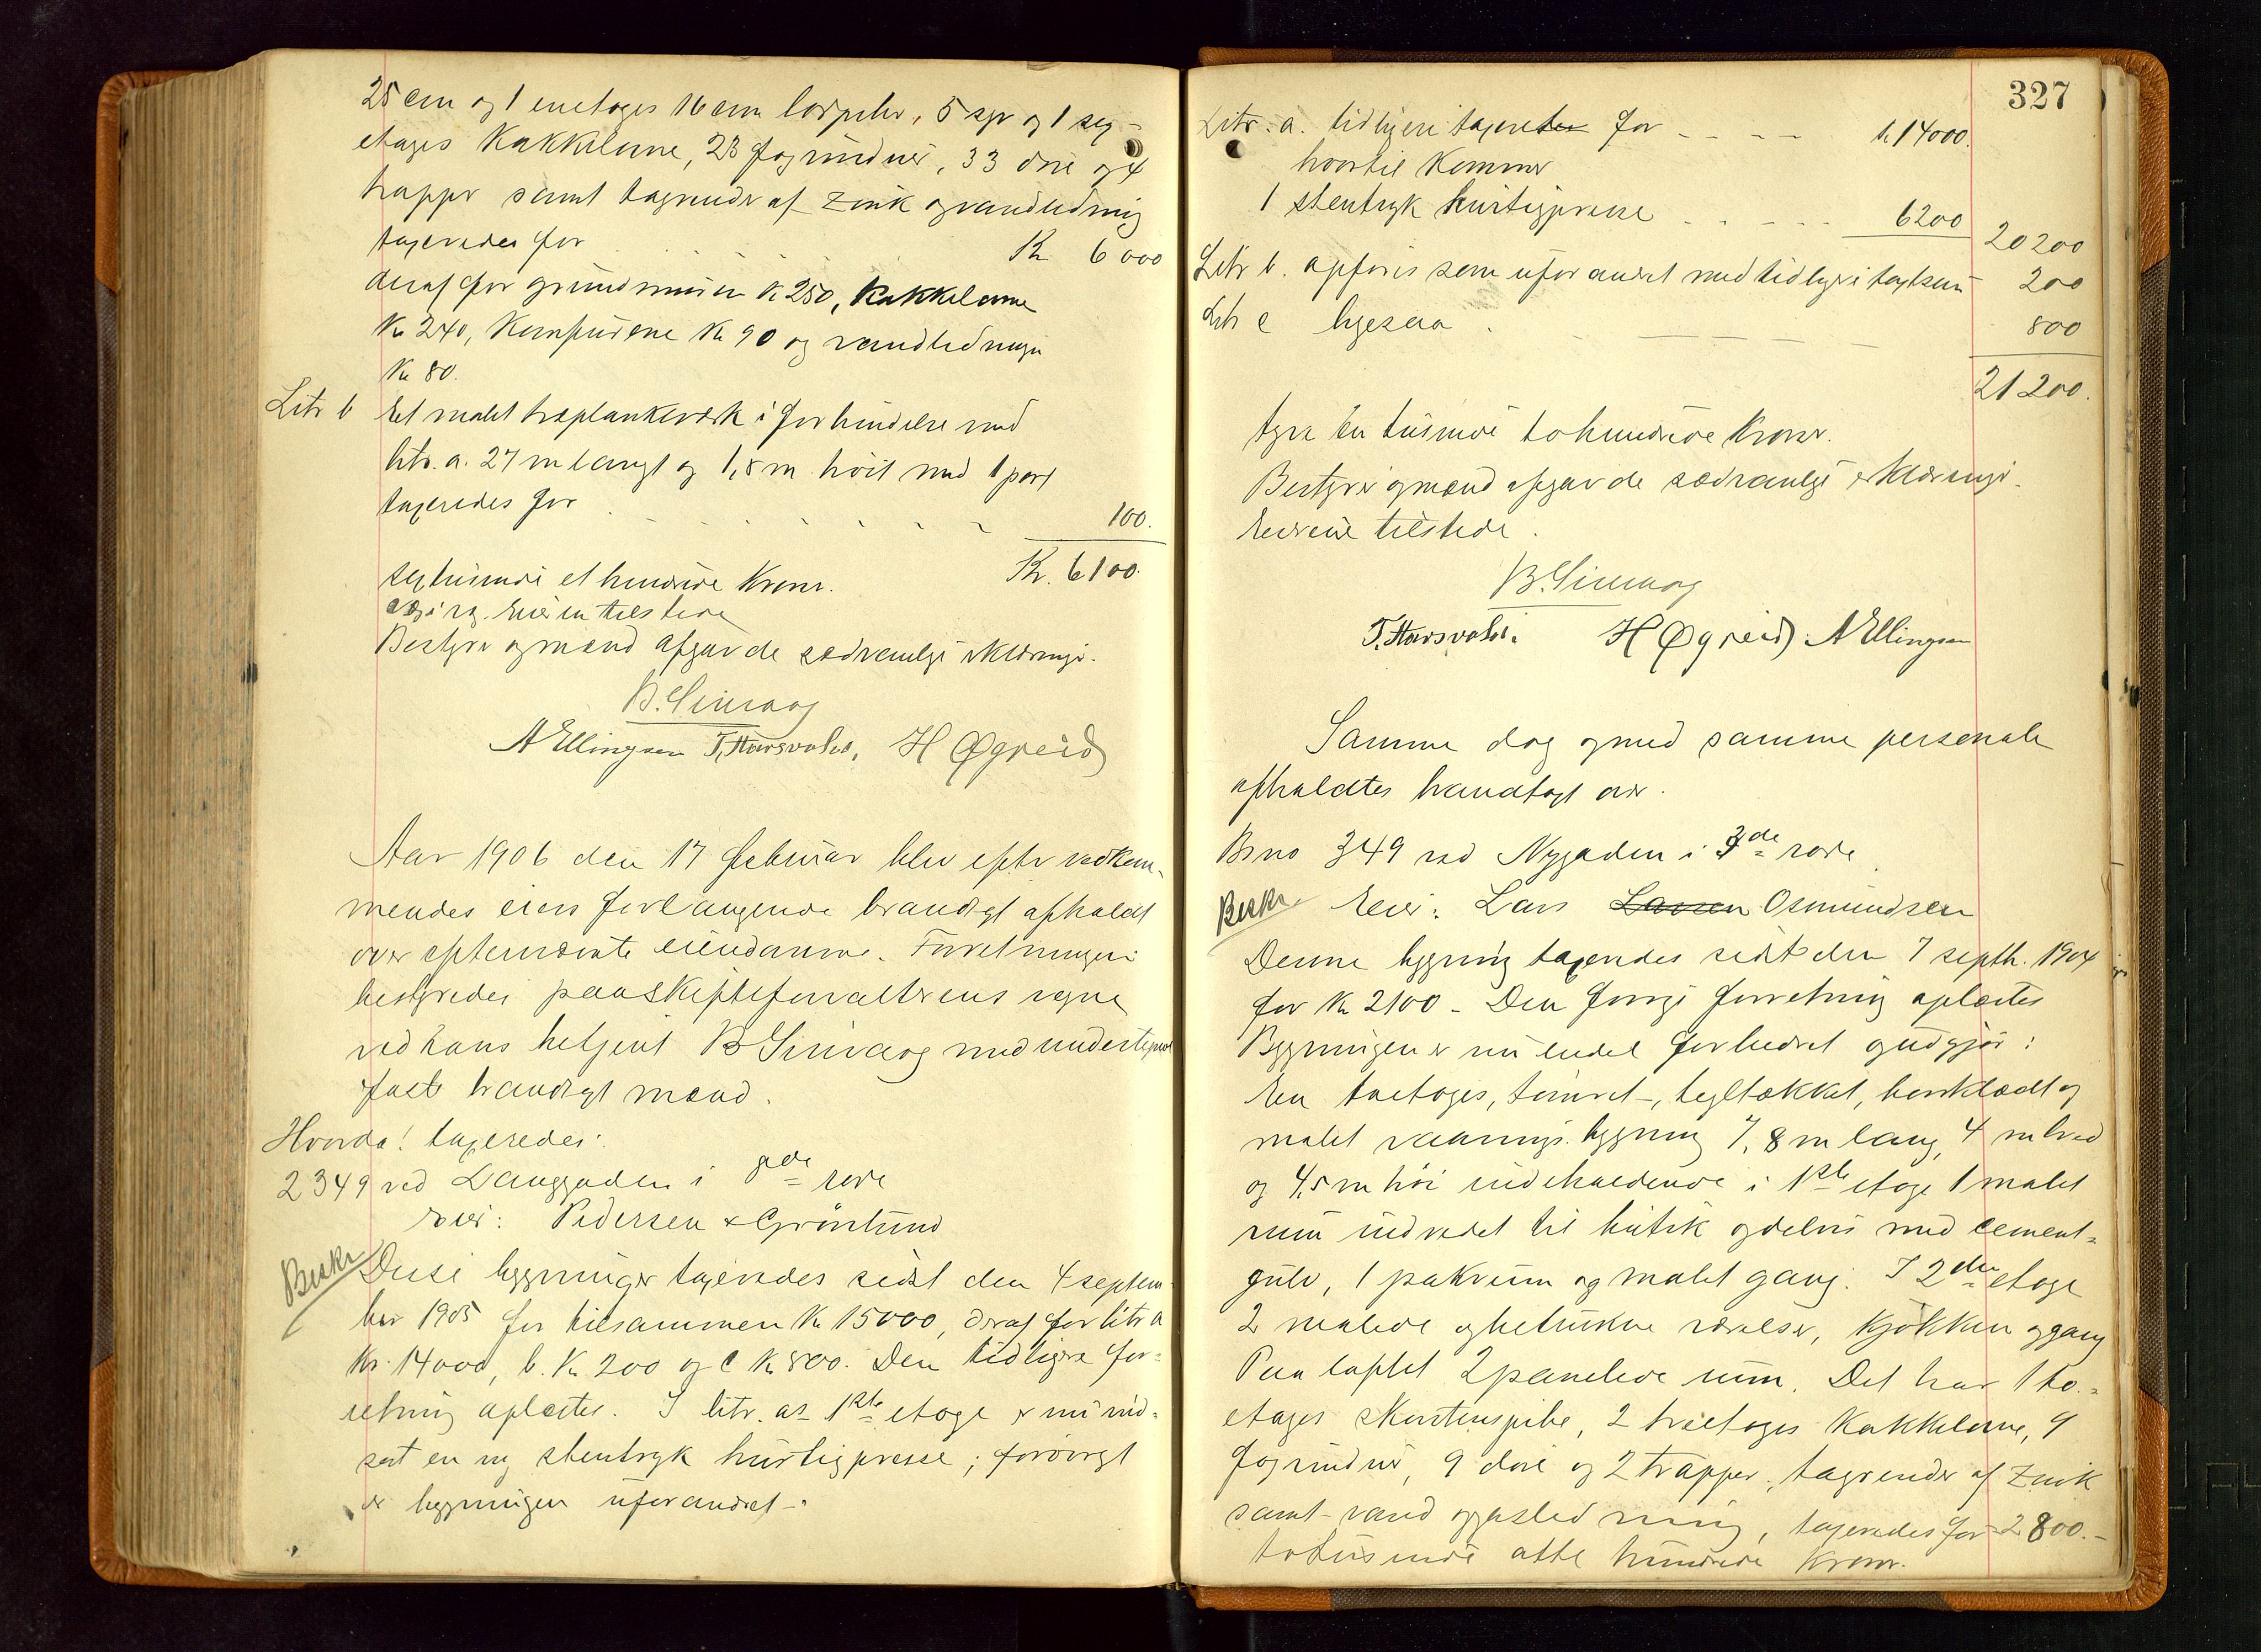 25 cm og 1 enetages 16 cm løspibe, 5 og 1
etages Kakkelovne, 23 fag vinduer, 33 døre og 4
trapper samt tagrender af zink og vandledning
taxeredes for Kr 6000
deraf for grundmuren K 250, Kakkelovne
Kr 240, Komfurene Kr 90 og vandledningen
Kr 80.
Litr b Et malet træplankeverk i forbindelse med
litr. a. 27 m langt og 1,8 m høit med 1 port
taxeredes for 100.
Kr. 6100.
sextusinde et hundrede Kroner.
Eieren tilstede
Bestyrer og mænd afgav de sædvanlige erklæringer.
B. Sinnaog
A Ellingsen T. Hausvold. H Øgreid
Aar 1906 den 17 februar blev efter vedkom-
mendes eiers forlangende brandtaxt afholdt
over efternævnte eiendomme. Forretningen
bestyredes paa skifteforvalterens vegne
ved hans betjent B Sinnaog med undertegnede
faste brandtaxtmænd.
Hvorda! taxeredes:
2349 ved Langgaden i rode
Eier: Pedersen & Grönlund
Beskr Disse bygninger taxeredes sidst den 4 septem-
ber 1905 for tilsammen Kr 15000, deraf for litr a
Kr. 14000, b. Kr 200 og c Kr 800. Den tidligere for-
retning oplæstes. I litr. as 1ste etage er nu ind-
sat en ny stentryk hurtigpresse; forøvrigt
er bygningen uforandret.
327
Litr. a. tidligere taxeret for k 14000.
hvortil kommer
1 stentryk hurtigpresse 6200 20200
Litr b. opføres som uforandret med tidligere taxtsum 200
Litr c ligesaa 800
21200.
tyve en tusinde tohundrede Kroner.
Bestyrer og mænd afgav de sædvanlige erklæringer.
Eierne tilstede.
B. Sinnaog
T. Hausvold. H Øgreid A Ellingsen
Samme dag og med samme personale
afholdtes brandtaxt over.
Bno 349 ved Nygaden i 3de rode
Beskr. Eier: Lars Larsen Osmundsen
Denne bygning taxeredes sidst den 7 septb. 1904
for Kr 2100 - Den forrige forretning oplæstes
Bygningen er nu endel forbedret og udgjør:
En toetages, tømret-, tegltækket, bordklædt og
malet vaanings bygning 7,8 m lang, 4 m bred
og 4,5 m høi indeholdende i 1ste etage 1 malet
rum indredet til butik og delvis med cement-
gulv, 1 pakrum og malet gang. I 2den etage
2 malede og betrukne værelser, kjøkken og gang
Paa loftet 2 panelede rum. Det har 1 to-
etages skorstenspibe, 2 toetages Kakkelovne, 9
fag vinduer, 9 døre og 2 trapper, tagrender af Zink
samt vand og gasledning, taxeredes for 2800.-
totusinde otte hundrede Kroner.